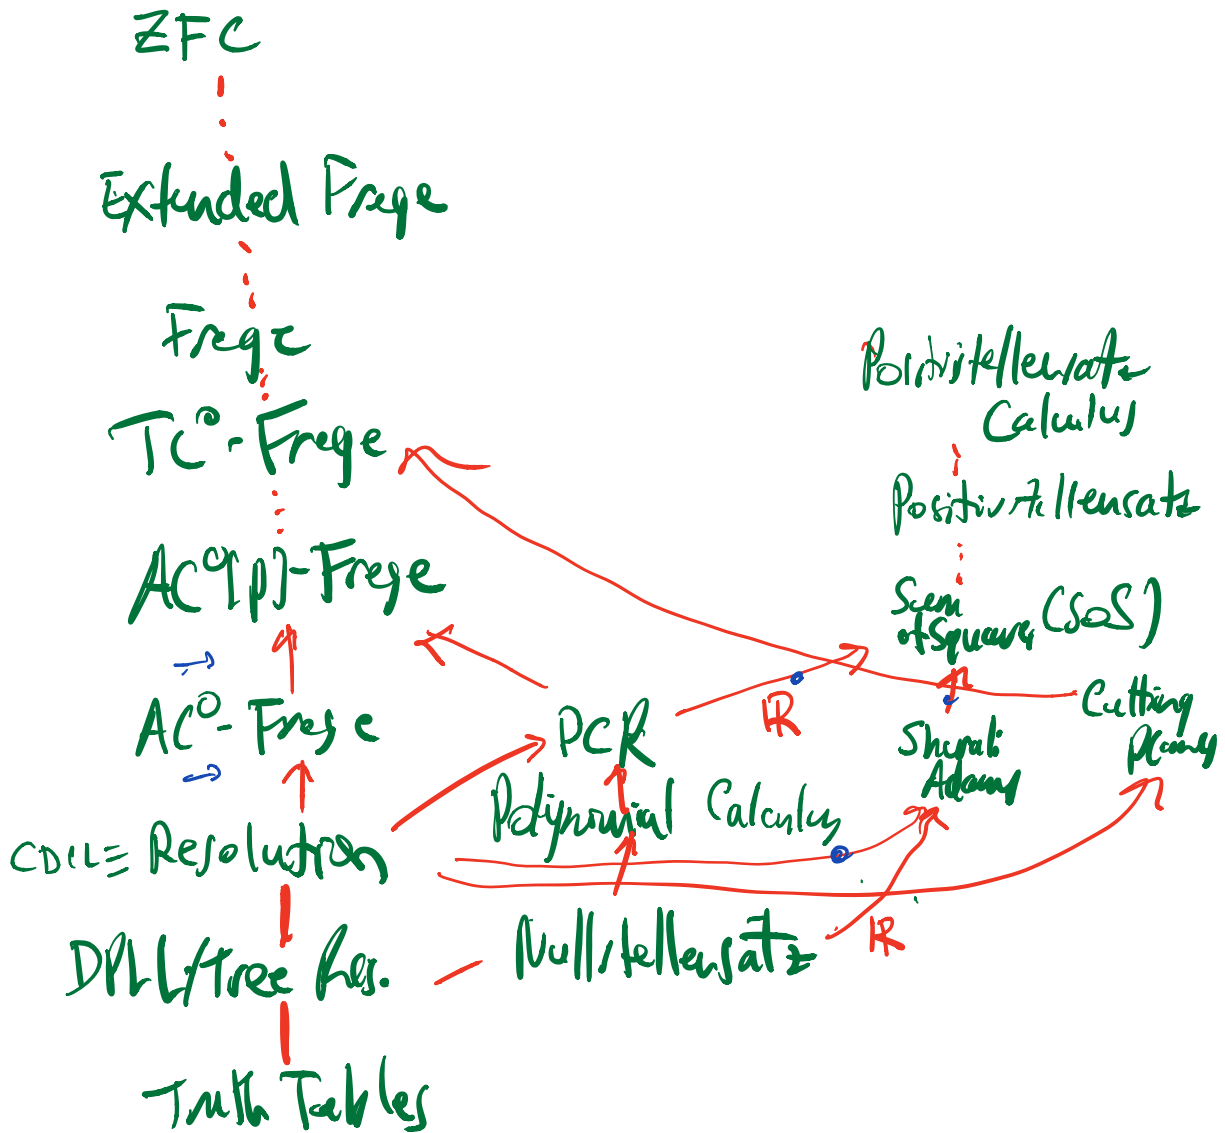 ZFC
Extended Frege
Frege
TC⁰-Frege
AC⁰[p]-Frege
AC⁰-Frege
CDCL = Resolution
DPLL/Tree Res.
Truth Tables
PCR
Polynomial Calculus
Nullstellensatz
IR
IR
Positivstellensatz
Calculus
Positivstellensatz
Sum
of Square (SoS)
Sherali
Adams
Cutting
Planes